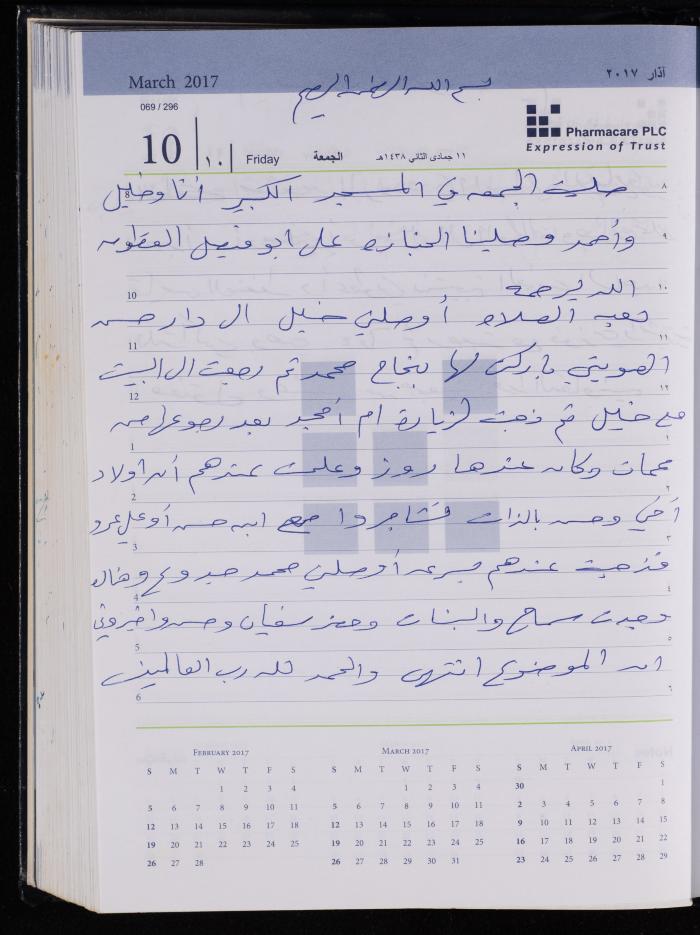 March 2017
آذار ٢٠١٧
بسم الله الرحمن الرحيم
069 / 296
10
١٠
Friday
الجمعة
١١ جمادى الثاني ١٤٣٨هـ
Pharmacare PLC
Expression of Trust
8 صليت الجمعه في المسجد الكبير أنا وخليل ٨
9 وأحمد وصلينا الجنازه على ابو فيصل ٩
10 الله يرحمه ١٠
11 بعد الصلاه أوصلني خليل ال دار حسن ١١
12 باركت لها بنجاح محمد ثم رجعت ال البيت ١٢
1 مع خليل ثم ذهبت لزيارة ام أمجد بعد رجوعها من ١
2 عمان وكان عندها روز وعلمت عندهم أن اولاد ٢
3 أخي وحسن بالذات تشاجروا مع ابن حسن أوعلي ٣
4 فذهبت عندهم بسرعه أوصلني محمد وهناك ٤
5 وجدت سماح والبنات وحضر سفيان وحسن واخبروني ٥
6 ان الموضوع انتهى والحمد لله رب العالمين ٦
FEBRUARY 2017
S M T W T F S
1 2 3 4
5 6 7 8 9 10 11
12 13 14 15 16 17 18
19 20 21 22 23 24 25
26 27 28
MARCH 2017
S M T W T F S
1 2 3 4
5 6 7 8 9 10 11
12 13 14 15 16 17 18
19 20 21 22 23 24 25
26 27 28 29 30 31
APRIL 2017
S M T W T F S
30 1
2 3 4 5 6 7 8
9 10 11 12 13 14 15
16 17 18 19 20 21 22
23 24 25 26 27 28 29